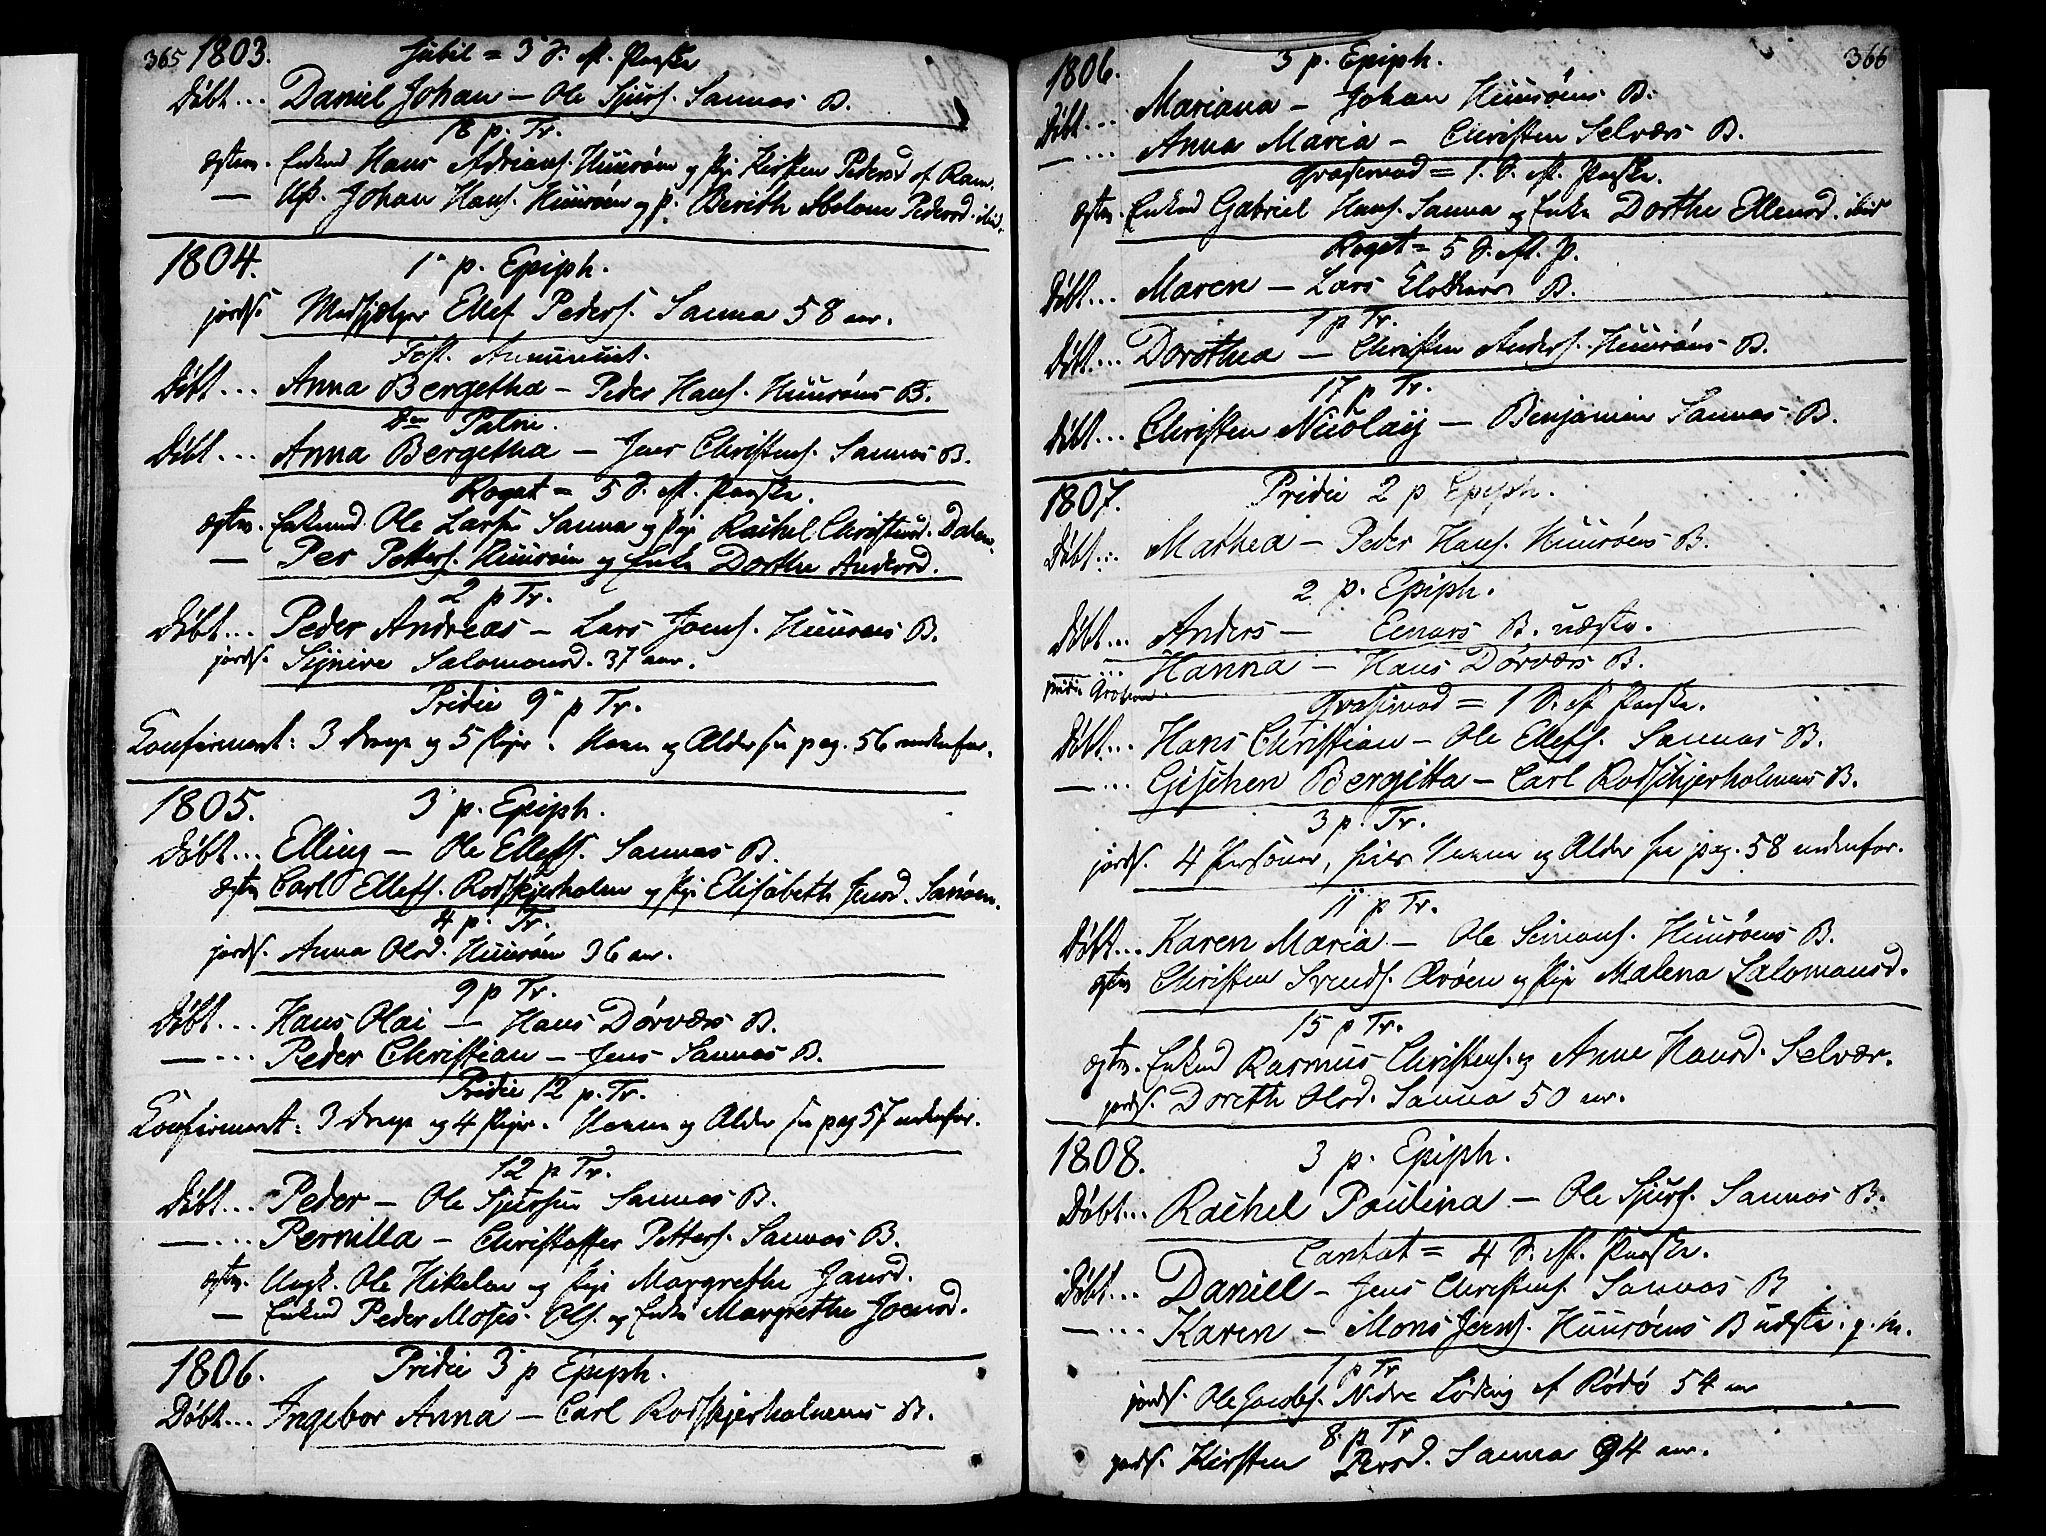 365 1803. Jubil = 3 S. eft. Paaske
Døbt... Daniel Johan – Ole Sjurs. Sannas B.
18 p. Tr.
ægtev. Enkmd Hans Adrians. Huusøen og Pige Kirsten Pedersd. af Ran.
— Uk. Johan Hans. Huusøen og P. Berith Abelone Pedersd. ibid.
1804. 1 p. Epiph.
jords. Medhjelper Ellef Peders. Sanna 58 aar.
Fest. Annunciat.
Døbt... Anna Bergetha – Peder Hans. Huusøens B.
Dom Palm.
Døbt... Anna Bergetha – Jens Christens. Sannas B.
Rogat = 5 S. eft. Paaske.
ægtev. Enkemd. Ole Larsen Sanna og Pige Rachel Christensd. Dalen.
— Per Petters. Huusøen og Enke Dorthe Andersd.
2 p Tr.
Døbt... Peder Andreas – Lars Joens. Huusøens B.
jords. Signive Salomonsd. 37 aar.
Pridie 9 p Tr.
Confirmert: 3 Drenge og 5 Piger. Navn og Alder see pag. 56 nedenfor.
1805. 3 p. Epiph.
Døbt... Elling – Ole Ellefs. Sannas B.
ægtev Carl Ellefs. Rodskjerholm og Pige Elisabeth Jensd. Sanøen.
4 p. Tr.
jords. Anna Olsd. Huusøen 36 aar.
9 p Tr.
Døbt... Hans Olai – Hans Dørværs B.
— ... Peder Christian – Jens Sannas B.
Pridie 12 p. Tr.
Confirmert: 3 Drenge og 4 Piger. Navne og Alder see pag 57 nedenfor.
12 p Tr.
Døbt... Peder – Ole Sjursen Sannas B.
— ... Pernilla – Christoffer Petters. Sannas B.
ægtev. Ungk. Ole Nikolai og Pige Margrethe Jansd.
— Enkmd Peder Moses Ols. og Enke Margrethe Joensd.
1806. Pridie 3 p Epiph.
Døbt... Ingebor Anna – Carl Rodskjerholmens B.
366
1806. 3 p. Epiph.
Døbt... Mariana – Johan Huusøens B.
— ... Anna Maria – Christen Selværs B.
Qvasimod = 1. S. eft. Paaske.
ægtev. Enkmd Gabriel Hans. Sanna og Enke Dorthe Ellensd. ibid
Rogat = 5 S. eft. P.
Døbt... Maren – Lars B.
1 p Tr.
Døbt... Dorothea – Christen Anders. Huusøens B.
17 p Tr.
Døbt... Christen Nicolaij – Benjamin Sannas B.
1807. Pridie 2 p Epiph.
Døbt... Mathea – Peder Hans. Huusøens B.
2 p. Epiph.
Døbt... Anders – Einars B. uægte.
... Hanna – Hans Dørværs B.
Pridie
Qvasimod = 1 S. eft Paaske.
Døbt... Hans Christian – Ole Ellefs. Sannas B.
— ... Gischen Bergitta – Carl Rodskjerholmens B.
3 p. Tr.
jords. 4 Personer, hvis Navne og Alder see pag. 58 nedenfor.
11 p Tr.
Døbt... Karen Maria – Ole Simons. Huusøens B.
ægtev Christen Svends. Qvøen og Pige Malena Salomonsd.
15 p Tr.
ægtev. Enkmd Rasmus Christens. og Anne Hansd. Selvær.
jords. Doreth Olsd. Sanna 50 aar.
1808. 3 p. Epiph.
Døbt... Rachel Paulina – Ole Sjurs. Sannas B.
Cantat = 4 S. eft. Paaske.
Døbt... Daniel – Jens Christens. Sannas B
— ... Karen – Mons Jens. Huusøens B uægte.
1 p Tr
jords. Ole Jacobs. Nedre Løding af Rødø 54 aar
8 p Tr
jords. Kirsten Persd. Sanna 94 aar.